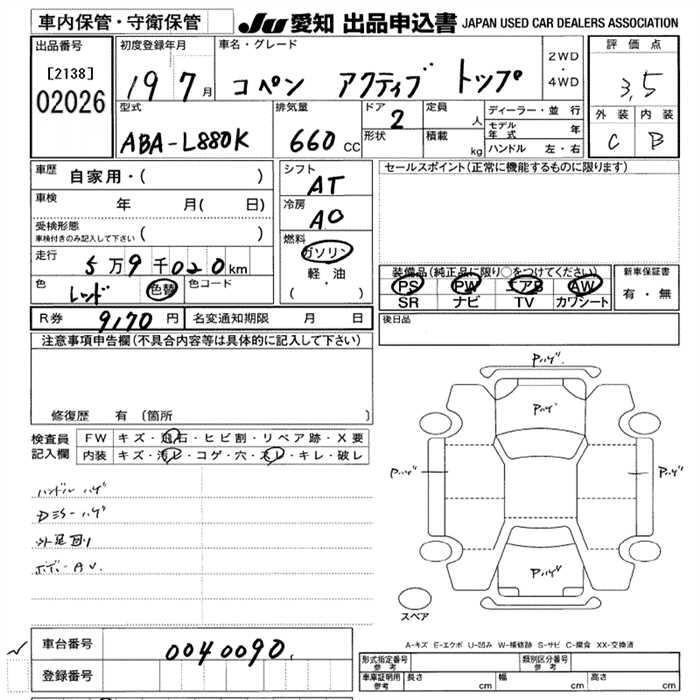 車内保管・守衛保管
JU 愛知 出品申込書 JAPAN USED CAR DEALERS ASSOCIATION
出品番号
[2138]
02026
初度登録年月
19 7 月
車名・グレード
コペン アクティブ トップ
2WD
・
4WD
評価点
3,5
外装 内装
C B
型式
ABA-L880K
排気量
660 CC
ドア
2
形状
定員
人
積載
kg
ディーラー・並行
モデル年式 年
ハンドル 左・右
車歴
自家用・( )
車検
年 月( 日)
受検形態
車検付きのみ記入して下さい ( )
走行
5万9千020km
色
レッド 色替
色コード
シフト
AT
冷房
AC
燃料
ガソリン
軽・油
( ・ )
セールスポイント(正常に機能するものに限ります)
装備品(純正品に限り○をつけてください)
PS PW エアB AW
SR ナビ TV カワシート
新車保証書
有・無
R券 9,170 円
名変通知期限 月 日
後日品
注意事項申告欄(不具合内容等は具体的に記入して下さい)
修復歴 有 (箇所 )
検査員
記入欄
FW キズ・飛石・ヒビ割・リペア跡・X要
内装 キズ・汚レ・コゲ・穴・スレ・キレ・破レ
ハンドル ハゲ
外足回り
ボデーAU.
Pハゲ.
Pハゲ
Pハゲ
Pハゲ
Pハゲ
スペア
A-キズ E-エクボ U-凹み W-補修跡 S-サビ C-腐食 XX-交換済
車台番号
0040090
登録番号
形式指定番号
参考
類別区分番号
参考
車庫証明用
参考
長さ cm
幅 cm
高さ cm